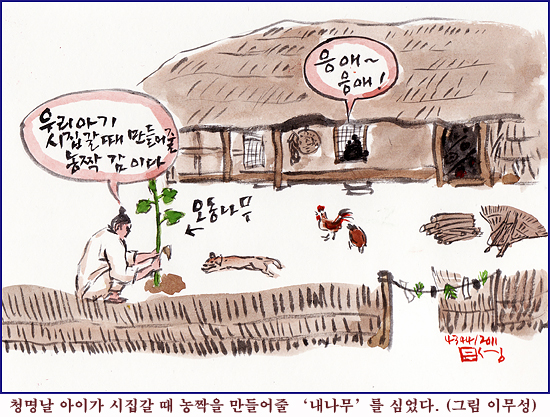 응애~
응애!
우리아기
시집갈때 만들어줄
농짝 감이다
오동나무
4344/2011
청명날 아이가 시집갈 때 농짝을 만들어줄 ‘내나무’를 심었다. (그림 이무성)